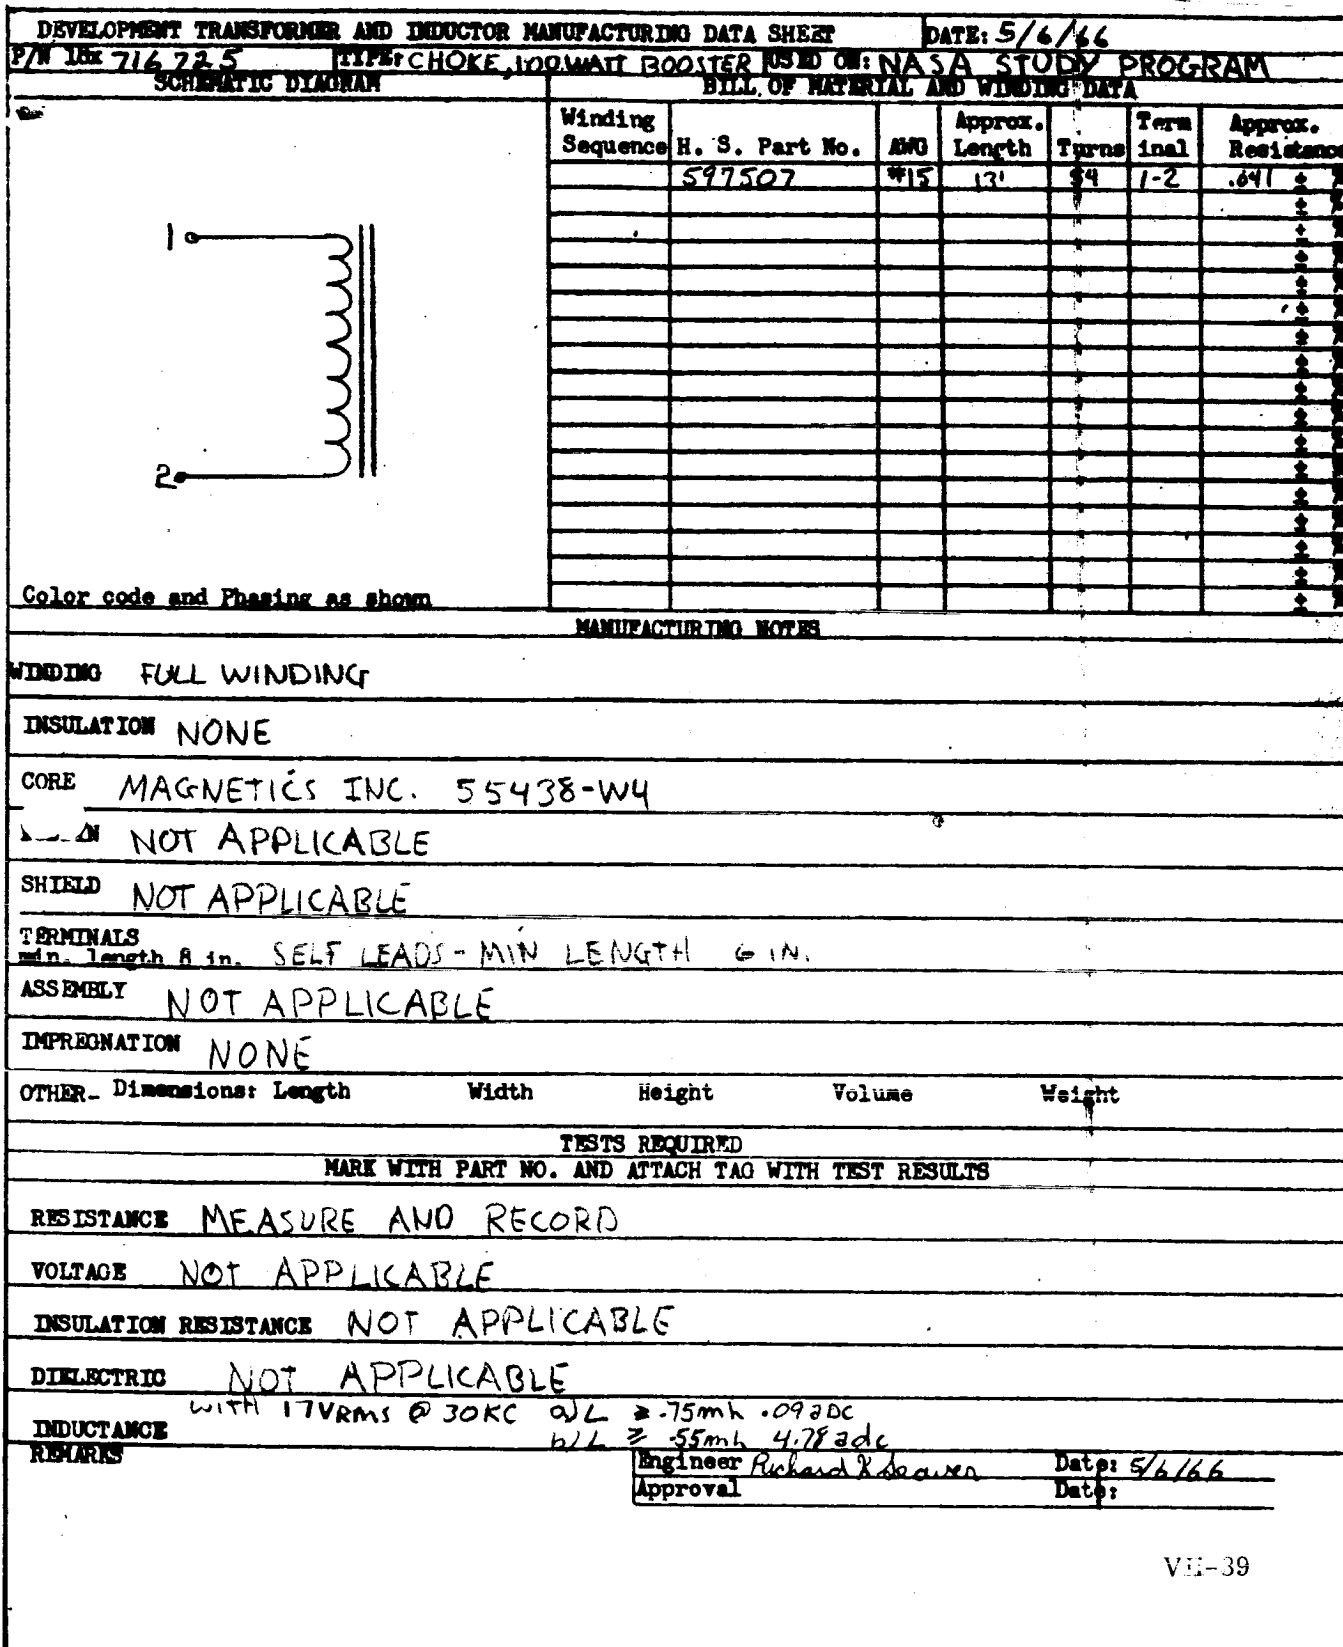 DEVELOPMENT TRANSFORMER AND INDUCTOR MANUFACTURING DATA SHEET DATE: 5/6/66
P/N 18x 716725 TYPE: CHOKE, 100 WATT BOOSTER USED ON: NASA STUDY PROGRAM
SCHEMATIC DIAGRAM BILL OF MATERIAL AND WINDING DATA
Winding Sequence H. S. Part No. AWG Approx. Length Turns Term inal Approx. Resistance
597507 #15 13' 1-2 .041 ±
1
2
Color code and Phasing as shown
MANUFACTURING NOTES
WINDING FULL WINDING
INSULATION NONE
CORE MAGNETICS INC. 55438-W4
NOT APPLICABLE
SHIELD NOT APPLICABLE
TERMINALS
min. length 8 in. SELF LEADS - MIN LENGTH 6 IN.
ASSEMBLY NOT APPLICABLE
IMPREGNATION NONE
OTHER- Dimensions: Length Width Height Volume Weight
TESTS REQUIRED
MARK WITH PART NO. AND ATTACH TAG WITH TEST RESULTS
RESISTANCE MEASURE AND RECORD
VOLTAGE NOT APPLICABLE
INSULATION RESISTANCE NOT APPLICABLE
DIELECTRIC NOT APPLICABLE
WITH 17VRMS @ 30KC a) L ≥ .75mh .09adc
INDUCTANCE b) L ≥ .55mh 4.78adc
REMARKS
Engineer Richard K Seaver Date: 5/6/66
Approval Date:
VII-39